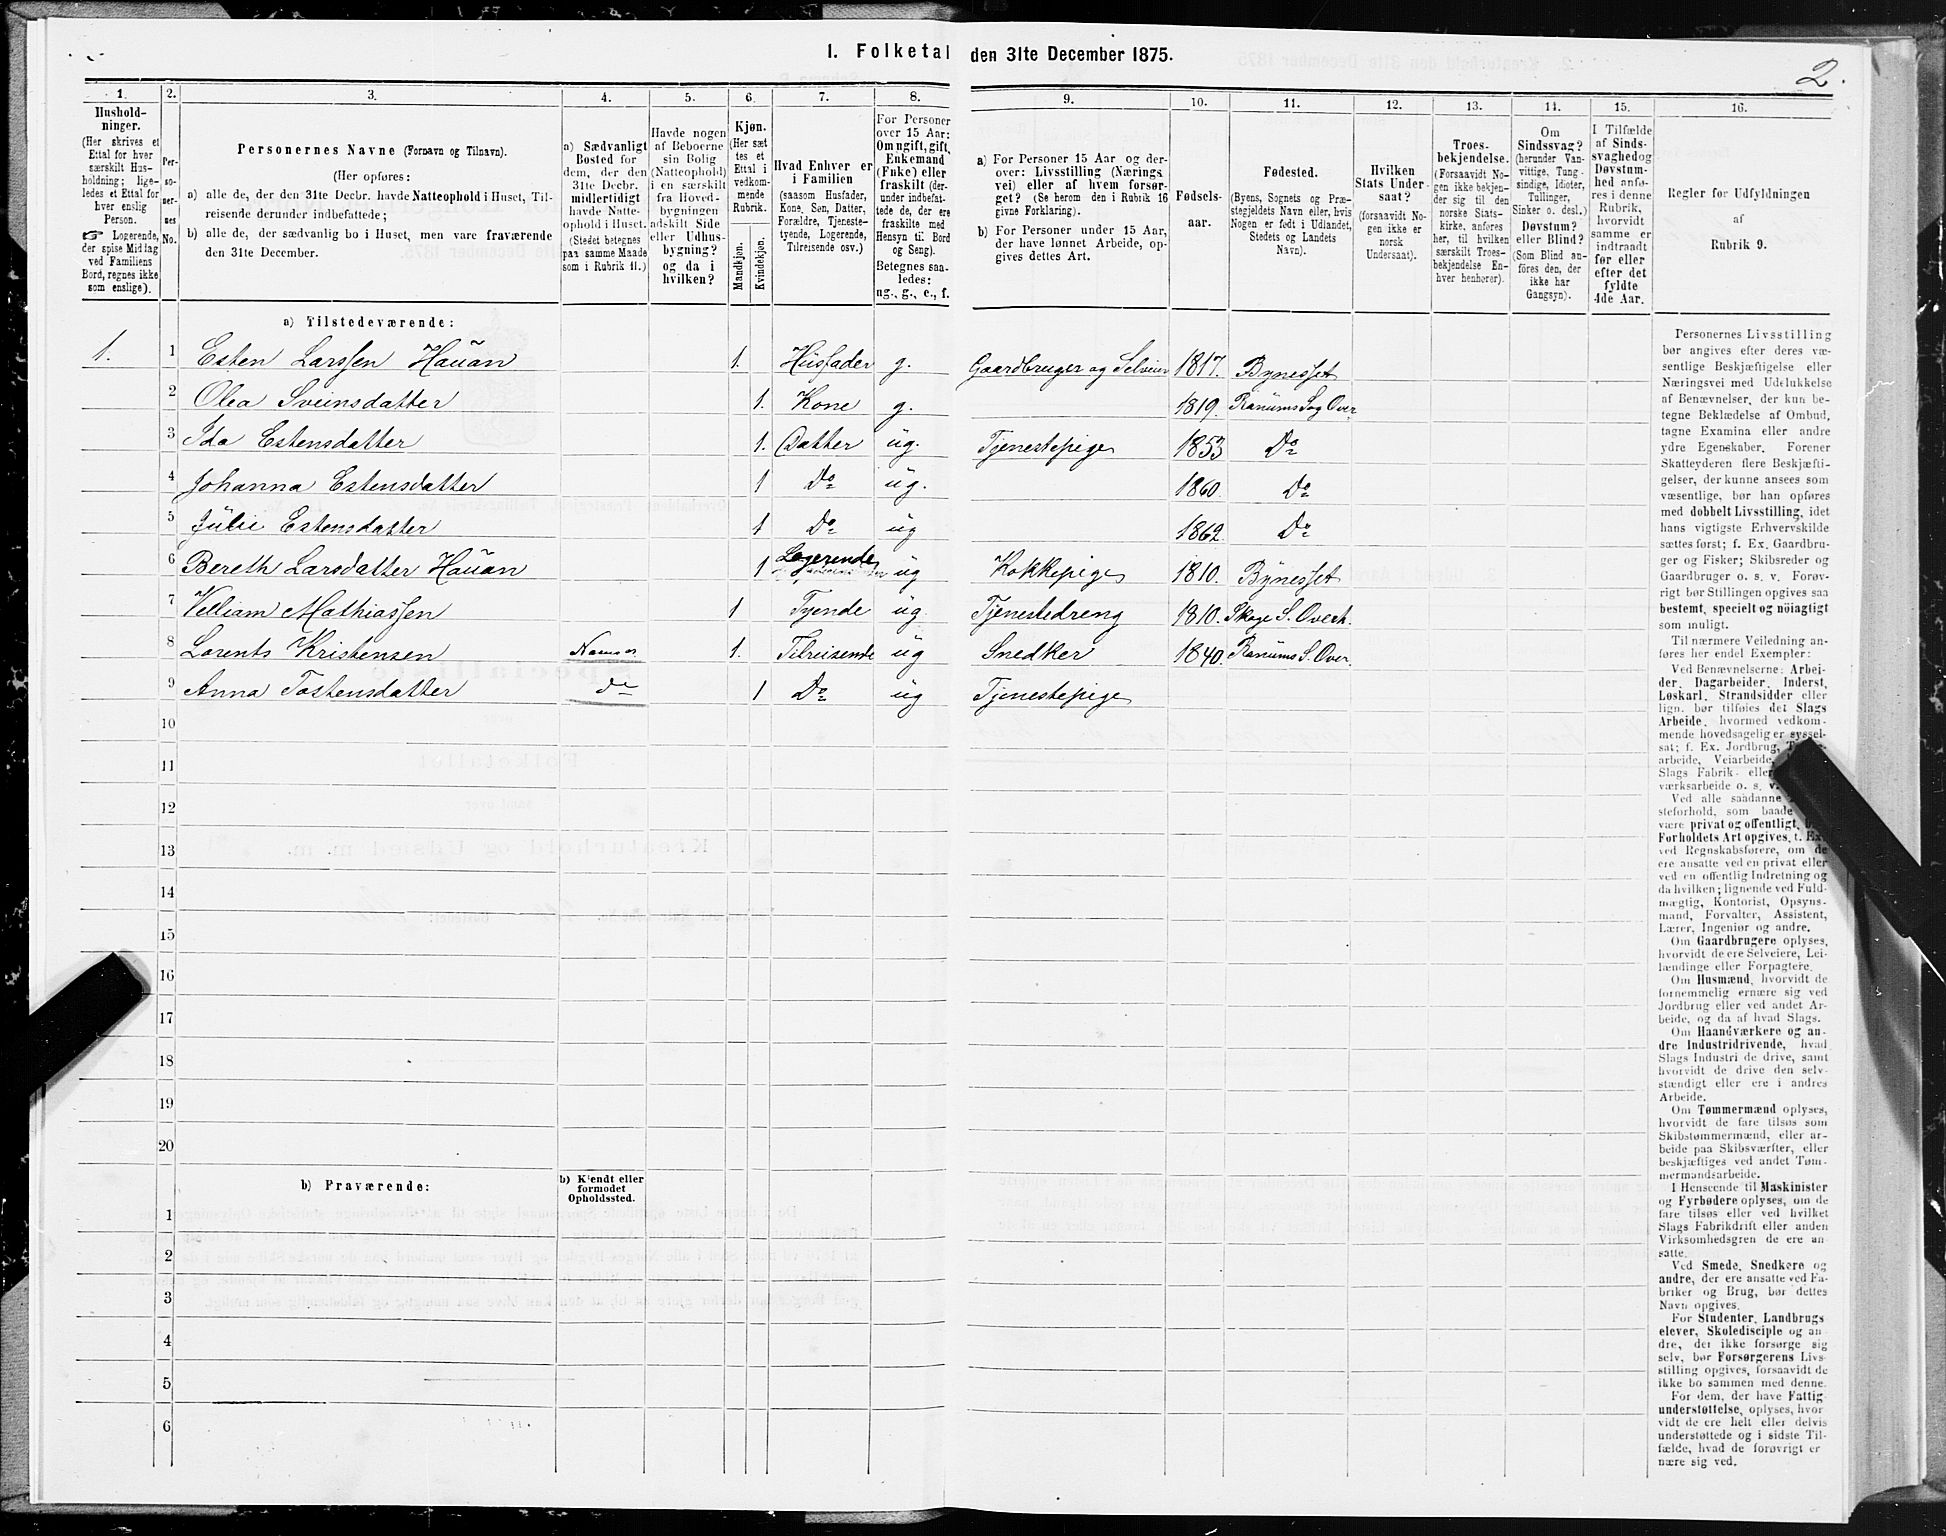 1. Folketal den 31te December 1875.
2.
1.
Hushold-
ninger.
(Her skrives et
Ettal for hver
særskilt Hus-
holdning; lige-
ledes et Ettal for
hver enslig
Person.
☞ Logerende,
der spise Midlag
ved Familiens
Bord, regnes ikke
som enslige).
2.
Per-
so-
ner-
nes
No.
3.
Personernes Navne (Fornavn og Tilnavn).
(Her opføres:
a) alle de, der den 31te Decbr. havde Natteophold i Huset, Til-
reisende derunder indbefattede;
b) alle de, der sædvanlig bo i Huset, men vare fraværende
den 31te December.
4.
a) Sædvanligt
Bosted for
dem, der den
31te Decbr.
midlertidigt
havde Natte-
ophold i Huset.
(Stedet betegnes
paa samme Maade
som i Rubrik 11.)
5.
Havde nogen
af Beboerne
sin Bolig
(Natteophold)
i en særskilt
fra Hoved-
bygningen
adskilt Side
eller Udhus-
bygning?
og da i
hvilken?
6.
Kjøn.
(Her sæt
tes et
Ettal i
vedkom-
mende
Rubrik.
Mandkjøn.
Kvindekjøn.
7.
Hvad Enhver er
i Familien
(saasom Husfader,
Kone, Søn, Datter,
Forældre, Tjeneste-
tyende, Logerende,
Tilreisende osv.)
8.
For Personer
over 15 Aar:
Om ugift, gift,
Enkemand
(Enke) eller
fraskilt (der-
under indbefat-
tede de, der ere
fraskilte med
Hensyn til Bord
og Seng).
Betegnes saa-
ledes:
ug., g., e., f.
9.
a) For Personer 15 Aar og der-
over: Livsstilling (Nærings
vei) eller af hvem forsør-
get? (Se herom den i Rubrik 16
givne Forklaring).
b) For Personer under 15 Aar,
der have lønnet Arbeide, op-
gives dettes Art.
10.
Fødsels-
aar.
11.
Fødested.
(Byens, Sognets og Præ-
stegjeldets Navn eller, hvis
Nogen er født i Udlandet,
Stedets og Landets
Navn).
12.
Hvilken
Stats Under-
saat?
(forsaavidt No-
gen ikke er
norsk
Undersaat).
13.
Troes-
bekjendelse.
(Forsaavidt No-
gen ikke bekjen-
der sig til den
norske Stats-
kirke, anføres
her, til hvilken
særskilt Troes-
bekjendelse En-
hver henhører).
14.
Om
Sindssvag?
(herunder Van-
vittige, Tung-
sindige, Idioter,
Tullinger,
Sinker o. desl.)
Døvstum?
eller Blind?
(Som Blind an-
føres den, der
ikke har
Gangsyn).
15.
I Tilfælde
af Sinds-
svaghed og
Døvstum-
hed anfø-
res i denne
Rubrik,
hvorvidt
samme er
indtraadt
før eller
efter det
fyldte
4de Aar.
16.
Regler for Udfyldningen
af
Rubrik 9.
a) Tilstedeværende:
1. 1 Esten Larssen Hauan 1. Husfader g. Gaardbruger og Selveier 1817. Bynesset
2 Olea Sveinsdatter 1. Kone g. 1819. Ranums Sog Over
3 Ida Estensdatter 1. Datter ug. Tjenestepige 1853 Do
4 Johanna Estensdatter 1 Do ug. 1860. Do
5 Julie Estensdatter 1 Do ug 1862. Do
6 Bereth Larsdatter Hauan 1 Logerende ug Kokkepige 1810. Bynesset
7 Velliam Mathiassen 1 Tyende ug. Tjenestedreng 1810. Skage S. Overh.
8 Lorents Kristensen Namsos 1. Tilreisende ug Snedker 1840. Ranums S. Over.
9 Anna Tostensdatter do 1 Do ug Tjenestepige
10
11
12
13
14
15
16
17
18
19
20
b) Fraværende:
b) Kjendt eller
formodet
Opholdssted.
1
2
3
4
5
6
Personernes Livsstilling
bør angives efter deres væ-
sentlige Beskjæftigelse eller
Næringsvei med Udelukkelse
af Benævnelser, der kun be-
tegne Beklædelse af Ombud,
tagne Examina eller andre
ydre Egenskaber. Forener
Skatteyderen flere Beskjæfti-
gelser, der kunne ansees som
væsentlige, bør han opføres
med dobbelt Livsstilling, idet
hans vigtigste Erhvervskilde
sættes først; f. Ex. Gaardbru-
ger og Fisker; Skibsreder og
Gaardbruger o. s. v. Forøv-
rigt bør Stillingen opgives saa
bestemt, specielt og nöiagtigt
som muligt.
Til nærmere Veiledning an-
føres her endel Exempler:
Ved Benævnelserne: Arbei-
der, Dagarbeider, Inderst,
Løskarl, Strandsidder eller
lign. bør tilføies det Slags
Arbeide, hvormed vedkom-
mende hovedsagelig er syssel-
sat; f. Ex. Jordbrug,
arbeide, Veiarbeide,
Slags Fabrik- eller
værksarbeide o. s. v.
Ved alle saadanne
steforhold, som baade
være privat og offentligt,
Forholdets Art opgives, t. Ex.
ved Regnskabsførere, om de
ere ansatte ved en privat eller
ved en offentlig Indretning og
da hvilken; lignende ved Fuld-
mægtig, Kontorist, Opsyns-
mand, Forvalter, Assistent,
Lærer, Ingeniør og andre.
Om Gaardbrugere oplyses,
hvorvidt de ere Selveiere, Lei-
lændinge eller Forpagtere.
Om Husmænd, hvorvidt de
fornemmelig ernære sig ved
Jordbrug eller ved andet Ar-
beide, og da af hvad Slags.
Om Haandværkere og an-
dre Industridrivende, hvad
Slags Industri de drive, samt
hvorvidt de drive den selv-
stændigt eller ere i andres
Arbeide.
Om Tømmermænd oplyses,
hvorvidt de fare tilsøs som
Skibstømmermænd, eller ar-
beide paa Skibsværfter, eller
beskjæftiges ved andet Tøm-
mermandsarbeide.
I Henseende til Maskinister
og Fyrbødere oplyses, om de
fare tilsøs eller ved hvilket
Slags Fabrikdrift eller anden
Virksomhedsgren de ere an-
satte.
Ved Smede, Snedkere og
andre, der ere ansatte ved Fa-
briker og Brug, bør dettes
Navn opgives.
For Studenter, Landbrugs
elever, Skoledisciple og an-
dre, der ikke forsørge sig
selv, bør Forsørgerens Livs-
stilling opgives, forsaavidt de
ikke bo sammen med denne.
For dem, der have Fattig-
understøttelse, oplyses, hvor
vidt de ere helt eller delvis
understøttede og i sidste Til-
fælde, hvad de forøvrigt er
nære sig ved.